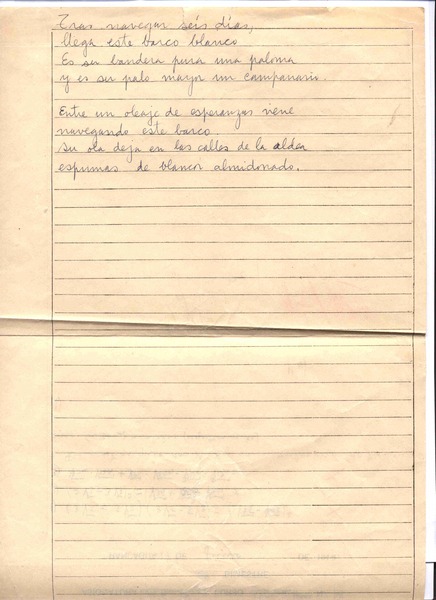 Tras navegar seis días,
llega este barco blanco
Es su bandera pura una paloma
y es su palo mayor un campanario.
Entre un oleaje de esperanzas viene
navegando este barco.
Su ola deja en las calles de la aldea
espumas de blancor almidonado.